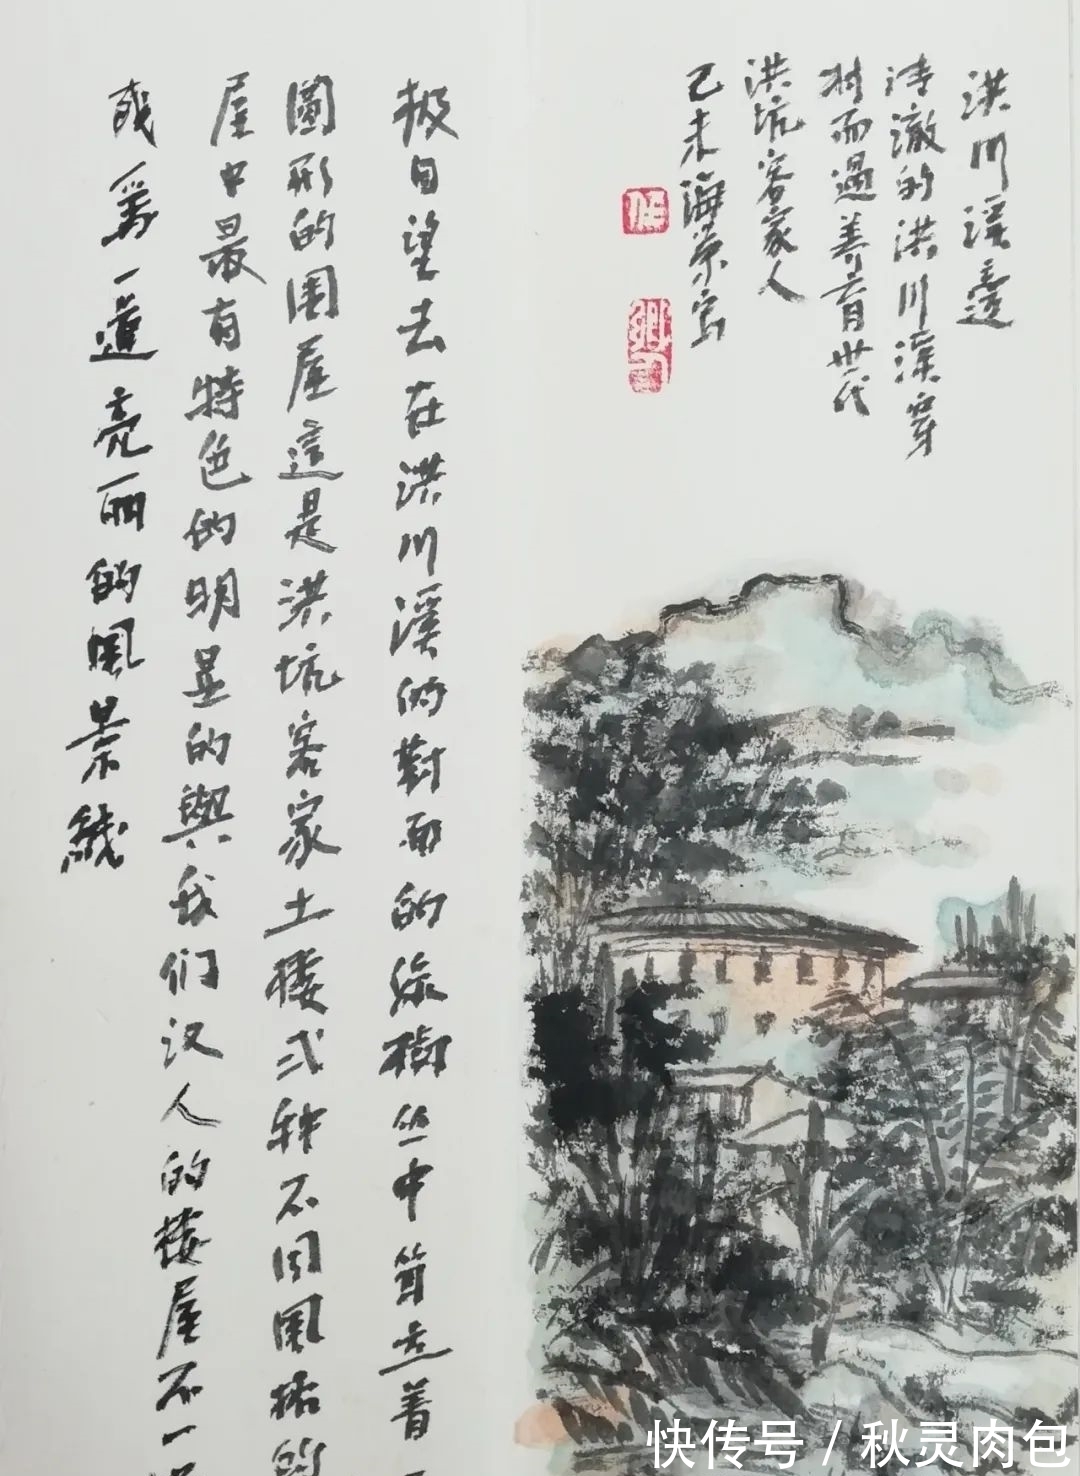 洪川溪邊
清澈的洪川溪穿
村而過養育世代
洪坑客家人
己未海榮寫
极目望去在洪川溪的對面的綠樹丛中耸立着
圓形的围屋這是洪坑客家土楼式种不同風格的
屋中最有特色的明显的與我们汉人的楼屋不一
成爲一道亮丽的風景綫
快传号 / 秋灵肉包